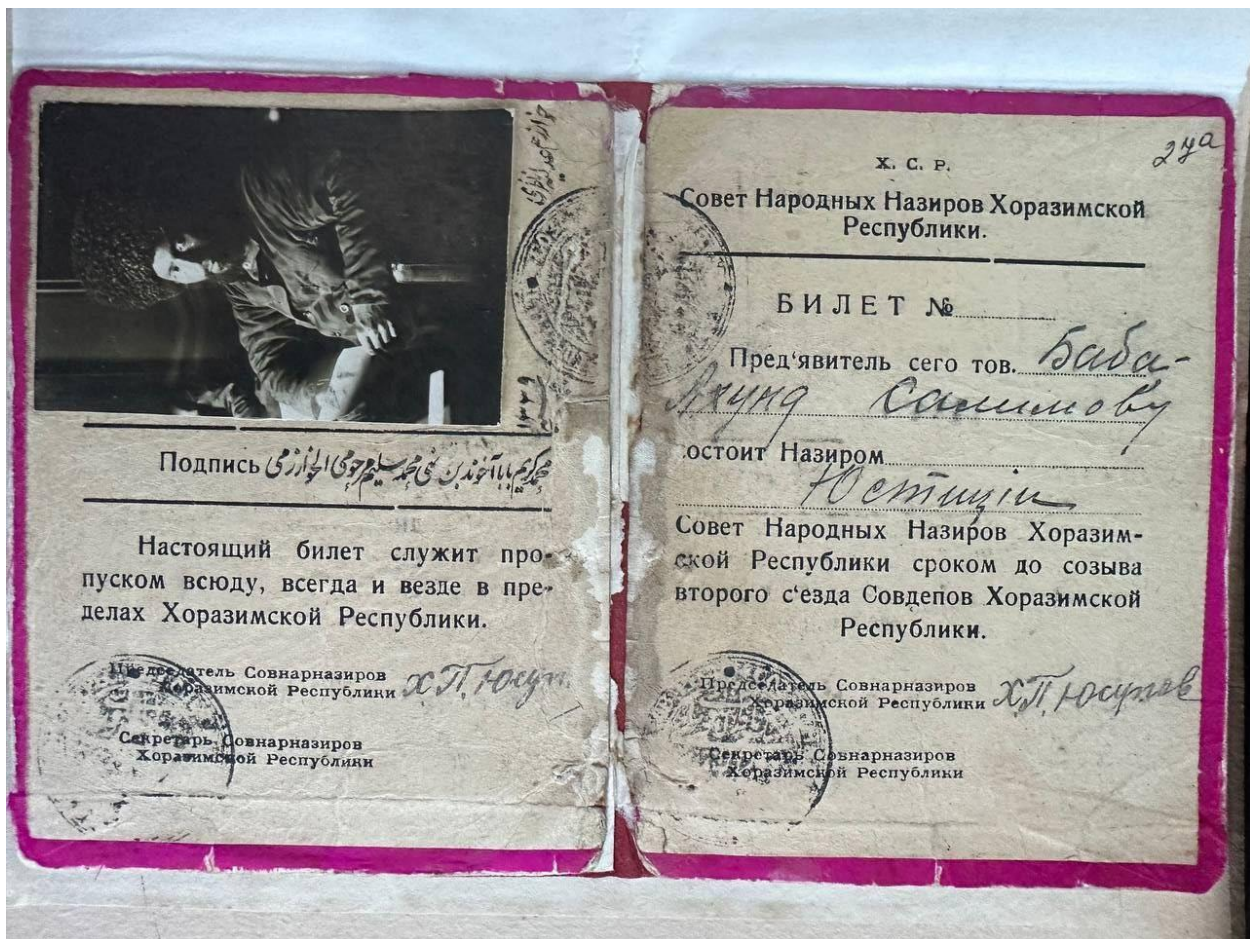 Подпись محمد کریم بابا آخوند بن محمد سلیم الخوارزمی
Настоящий билет служит про-
пуском всюду, всегда и везде в пре-
делах Хоразимской Республики.
Председатель Совнарназиров
Хоразимской Республики Х П. Юсуп
Секретарь Совнарназиров
Хоразимской Республики
27а
Х. С. Р.
Совет Народных Назиров Хоразимской
Республики.
БИЛЕТ №
Пред‘явитель сего тов. Баба-
Ахунд Салимову
состоит Назиром
Юстиціи
Совет Народных Назиров Хоразим-
ской Республики сроком до созыва
второго с‘езда Совдепов Хоразимской
Республики.
Председатель Совнарназиров
Хоразимской Республики Х П. Юсупов
Секретарь Совнарназиров
Хоразимской Республики